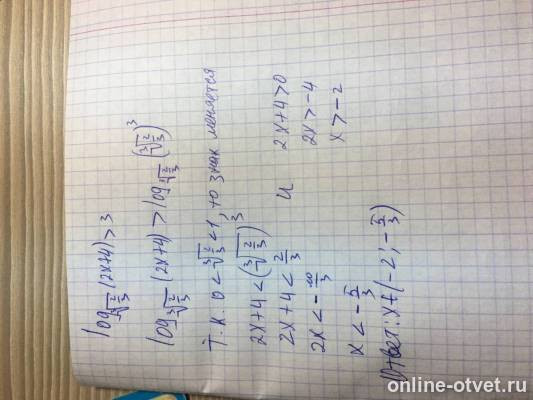 log_∛(2/3) (2x+4) > 3
log_∛(2/3) (2x+4) > log_∛(2/3) (∛(2/3))³
Т.к. 0 < ∛(2/3) < 1, то знак меняется
2x+4 < (∛(2/3))³
2x+4 < 2/3 и 2x+4>0
2x < -10/3 2x > -4
x < -5/3 x > -2
Ответ: x ∈ (-2; -5/3)
online-otvet.ru